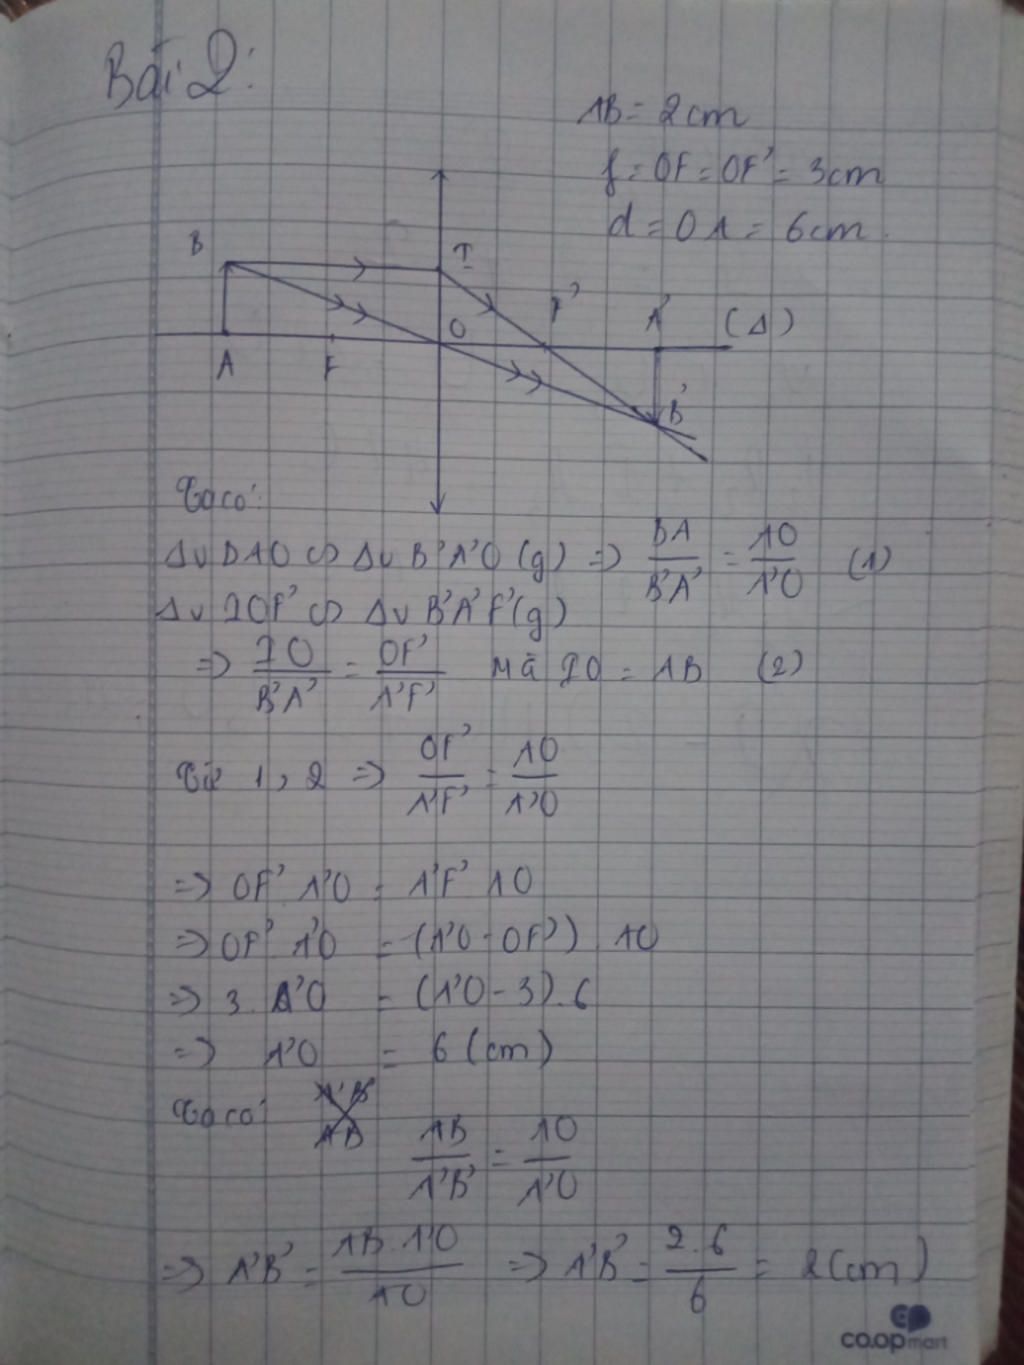 Bài 2:
AB = 2cm
f = OF = OF' = 3cm
d = OA = 6cm.
B I
O F' A' (Δ)
A F
B'
Ta có:
Δv BAO ∽ Δv B'A'O (g) => BA/B'A' = AO/A'O (1)
Δv IOF' ∽ Δv B'A'F' (g)
=> IO/B'A' = OF'/A'F' Mà IO = AB (2)
Từ 1, 2 => OF'/A'F' = AO/A'O
=> OF'. A'O = A'F' AO
=> OF'. A'O = (A'O - OF') . AO
=> 3. A'O = (A'O - 3). 6
=> A'O = 6 (cm)
Ta có: A'B'/AB
AB/A'B' = AO/A'O
=> A'B' = AB. A'O/AO => A'B' = 2.6/6 = 2 (cm)
co.opmart